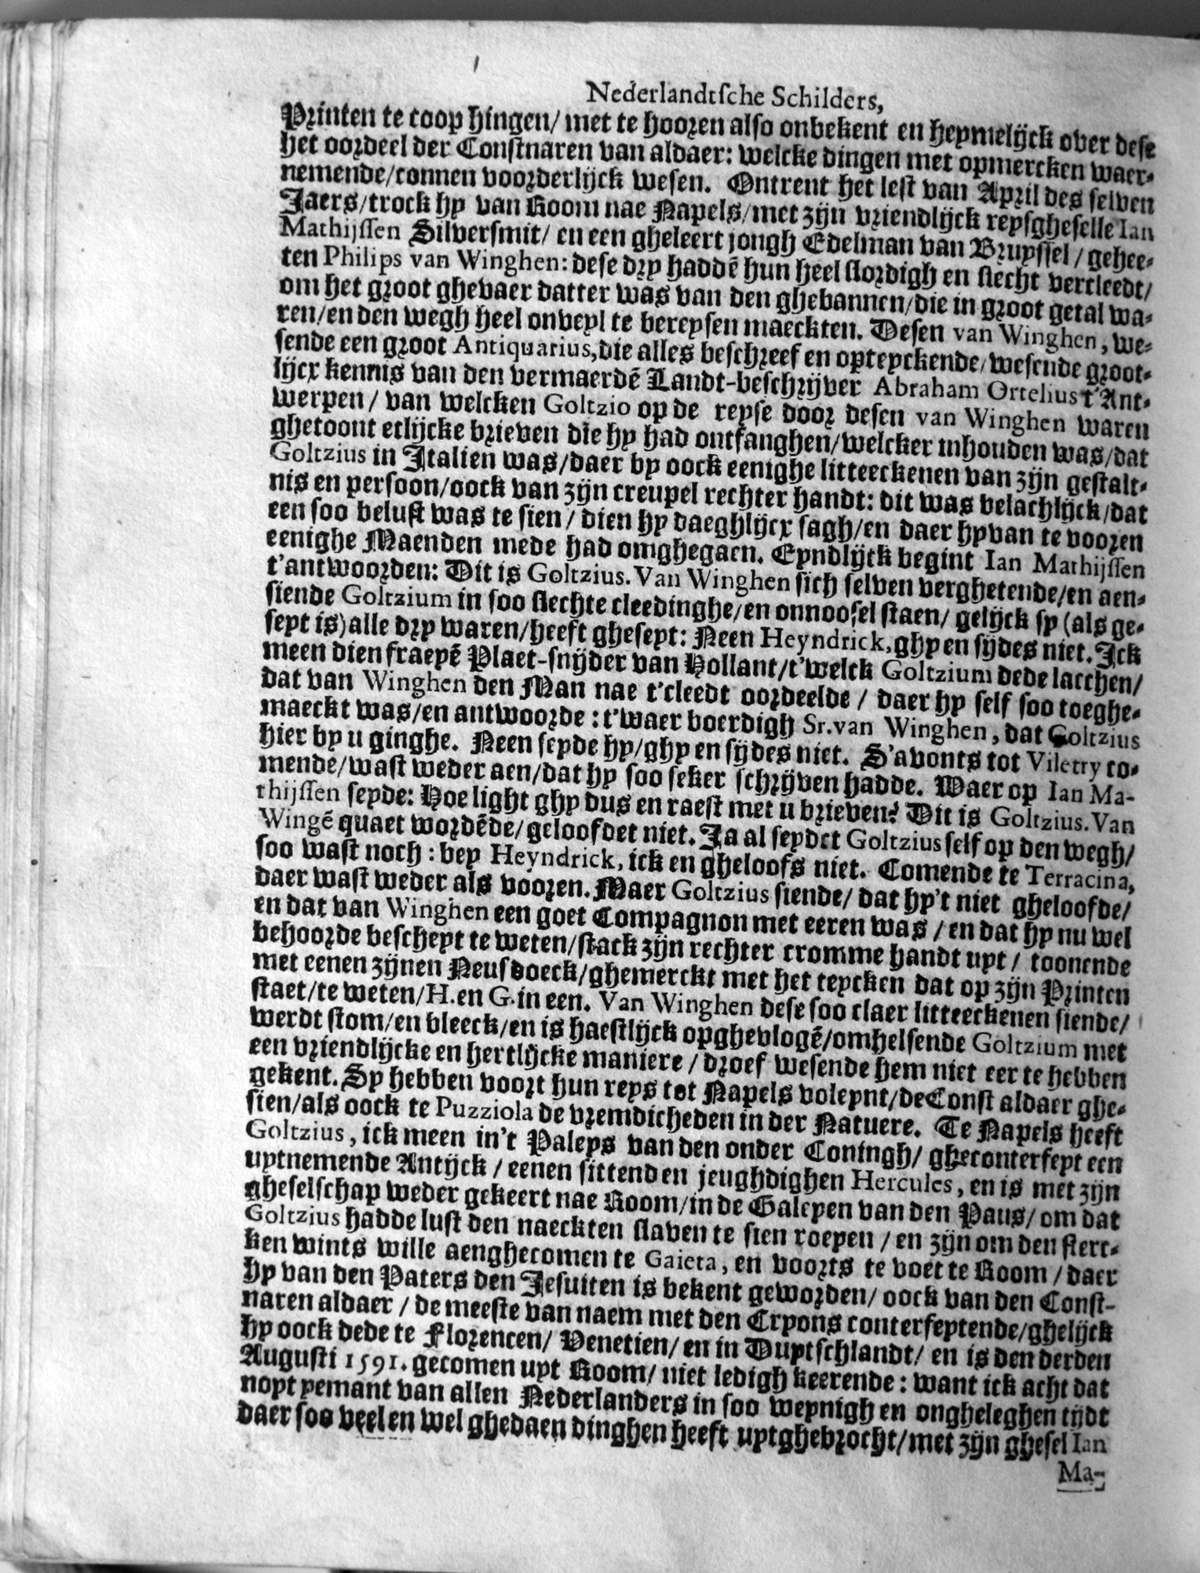 Nederlandtsche Schilders,
Printen te coop hingen/ met te hooren also onbekent en heymelijck over dese
het oordeel der Constnaren van aldaer: welcke dingen met opmercken waer-
nemende/connen voorderlijck wesen. Ontrent het lest van April des selven
Jaers/trock hy van Room nae Napels/met zijn vriendlijck reysgheselle Ian
Mathijssen Silversmit/ en een gheleert jongh Edelman van Bruyssel/ gehee-
ten Philips van Winghen: dese dry haddē hun heel slordigh en slecht vercleedt/
om het groot ghevaer datter was van den ghebannen/die in groot getal wa-
ren/en den wegh heel onveyl te bereysen maeckten. Desen van Winghen, we-
sende een groot Antiquarius, die alles beschreef en opteyckende/wesende groot-
lijcx kennis van den vermaerdē Landt-beschrijver Abraham Ortelius t'Ant-
werpen/ van welcken Goltzio op de reyse door desen van Winghen waren
ghetoont etlijcke brieven die hy had ontfanghen/welcker inhouden was/dat
Goltzius in Italien was/daer by oock eenighe litteeckenen van zijn gestalt-
nis en persoon/oock van zijn creupel rechter handt: dit was belachlijck/dat
een soo belust was te sien/ dien hy daeghlijcx sagh/en daer hy van te vooren
eenighe Maenden mede had omghegaen. Eyndlijck begint Ian Mathijssen
t'antwoorden: Dit is Goltzius. Van Winghen sich selven verghetende/en aen-
siende Goltzium in soo slechte cleedinghe/en onnoosel staen/ gelijck sy (als ge-
seyt is) alle dry waren/heeft gheseyt: Neen Heyndrick, ghy en sijdes niet. Ick
meen dien fraeyē Plaet-snijder van Hollant/t'welck Goltzium dede lacchen/
dat van Winghen den Man nae t'cleedt oordeelde/ daer hy self soo toeghe-
maeckt was/en antwoorde: t'waer boerdigh Sr. van Winghen, dat Goltzius
hier by u ginghe. Neen seyde hy/ghy en sijdes niet. S'avonts tot Viletry co-
mende/wast weder aen/dat hy soo seker schrijven hadde. Waer op Ian Ma-
thijssen seyde: Hoe light ghy dus en raest met u brieven? Dit is Goltzius. Van
Wingē quaet wordēde/geloofdet niet. Ja al seydet Goltzius self op den wegh/
soo wast noch: bey Heyndrick, ick en gheloofs niet. Comende te Terracina,
daer wast weder als vooren. Maer Goltzius siende/ dat hy't niet gheloofde/
en dat van Winghen een goet Compagnon met eeren was/ en dat hy nu wel
behoorde bescheyt te weten/stack zijn rechter cromme handt uyt/ toonende
met eenen zijnen Neusdoeck/ghemerckt met het teycken dat op zijn Printen
staet/te weten/H. en G. in een. Van Winghen dese soo claer litteeckenen siende/
werdt stom/en bleeck/en is haestlijck opghevlogē/omhelsende Goltzium met
een vriendlijcke en hertlijcke maniere/ droef wesende hem niet eer te hebben
gekent. Sy hebben voort hun reys tot Napels voleynt/de Const aldaer ghe-
sien/als oock te Puzziola de vremdicheden in der Natuere. Te Napels heeft
Goltzius, ick meen in't Paleys van den onder Coningh/ gheconterfeyt een
uytnemende Antijck/ eenen sittenden jeughdighen Hercules, en is met zijn
gheselschap weder gekeert nae Room/in de Galeyen van den Paus/ om dat
Goltzius hadde lust den naeckten slaven te sien roeyen/ en zijn om den sterc-
ken wints wille aenghecomen te Gaieta, en voorts te voet te Room/ daer
hy van den Paters den Jesuiten is bekent geworden/ oock van den Const-
naren aldaer/ de meeste van naem met den Cryons conterfeytende/ghelijck
hy oock dede te Florencen/ Venetien/ en in Duytschlandt/ en is den derden
Augusti 1591. gecomen uyt Room/ niet ledigh keerende: want ick acht dat
noyt yemant van allen Nederlanders in soo weynigh en ongheleghen tijdt
daer soo veel en wel ghedaen dinghen heeft uytghebrocht/met zijn ghesel Ian
Ma-